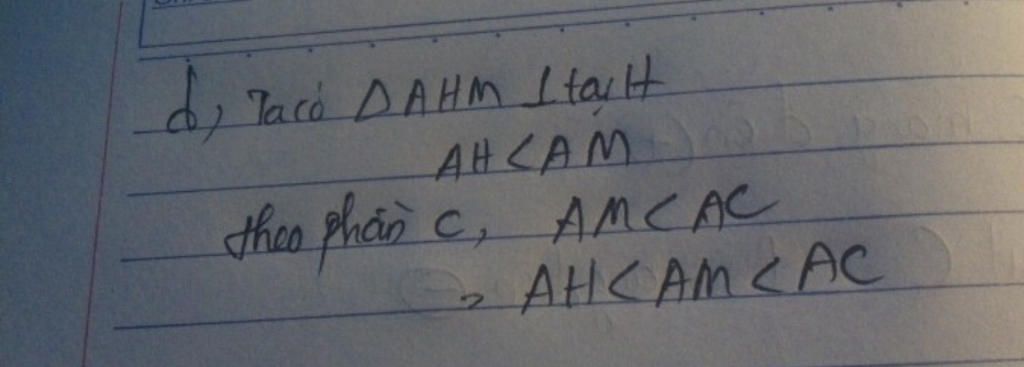 d, Ta có ΔAHM ⊥ tại H
AH < AM
theo phần c, AM < AC
> AH < AM < AC